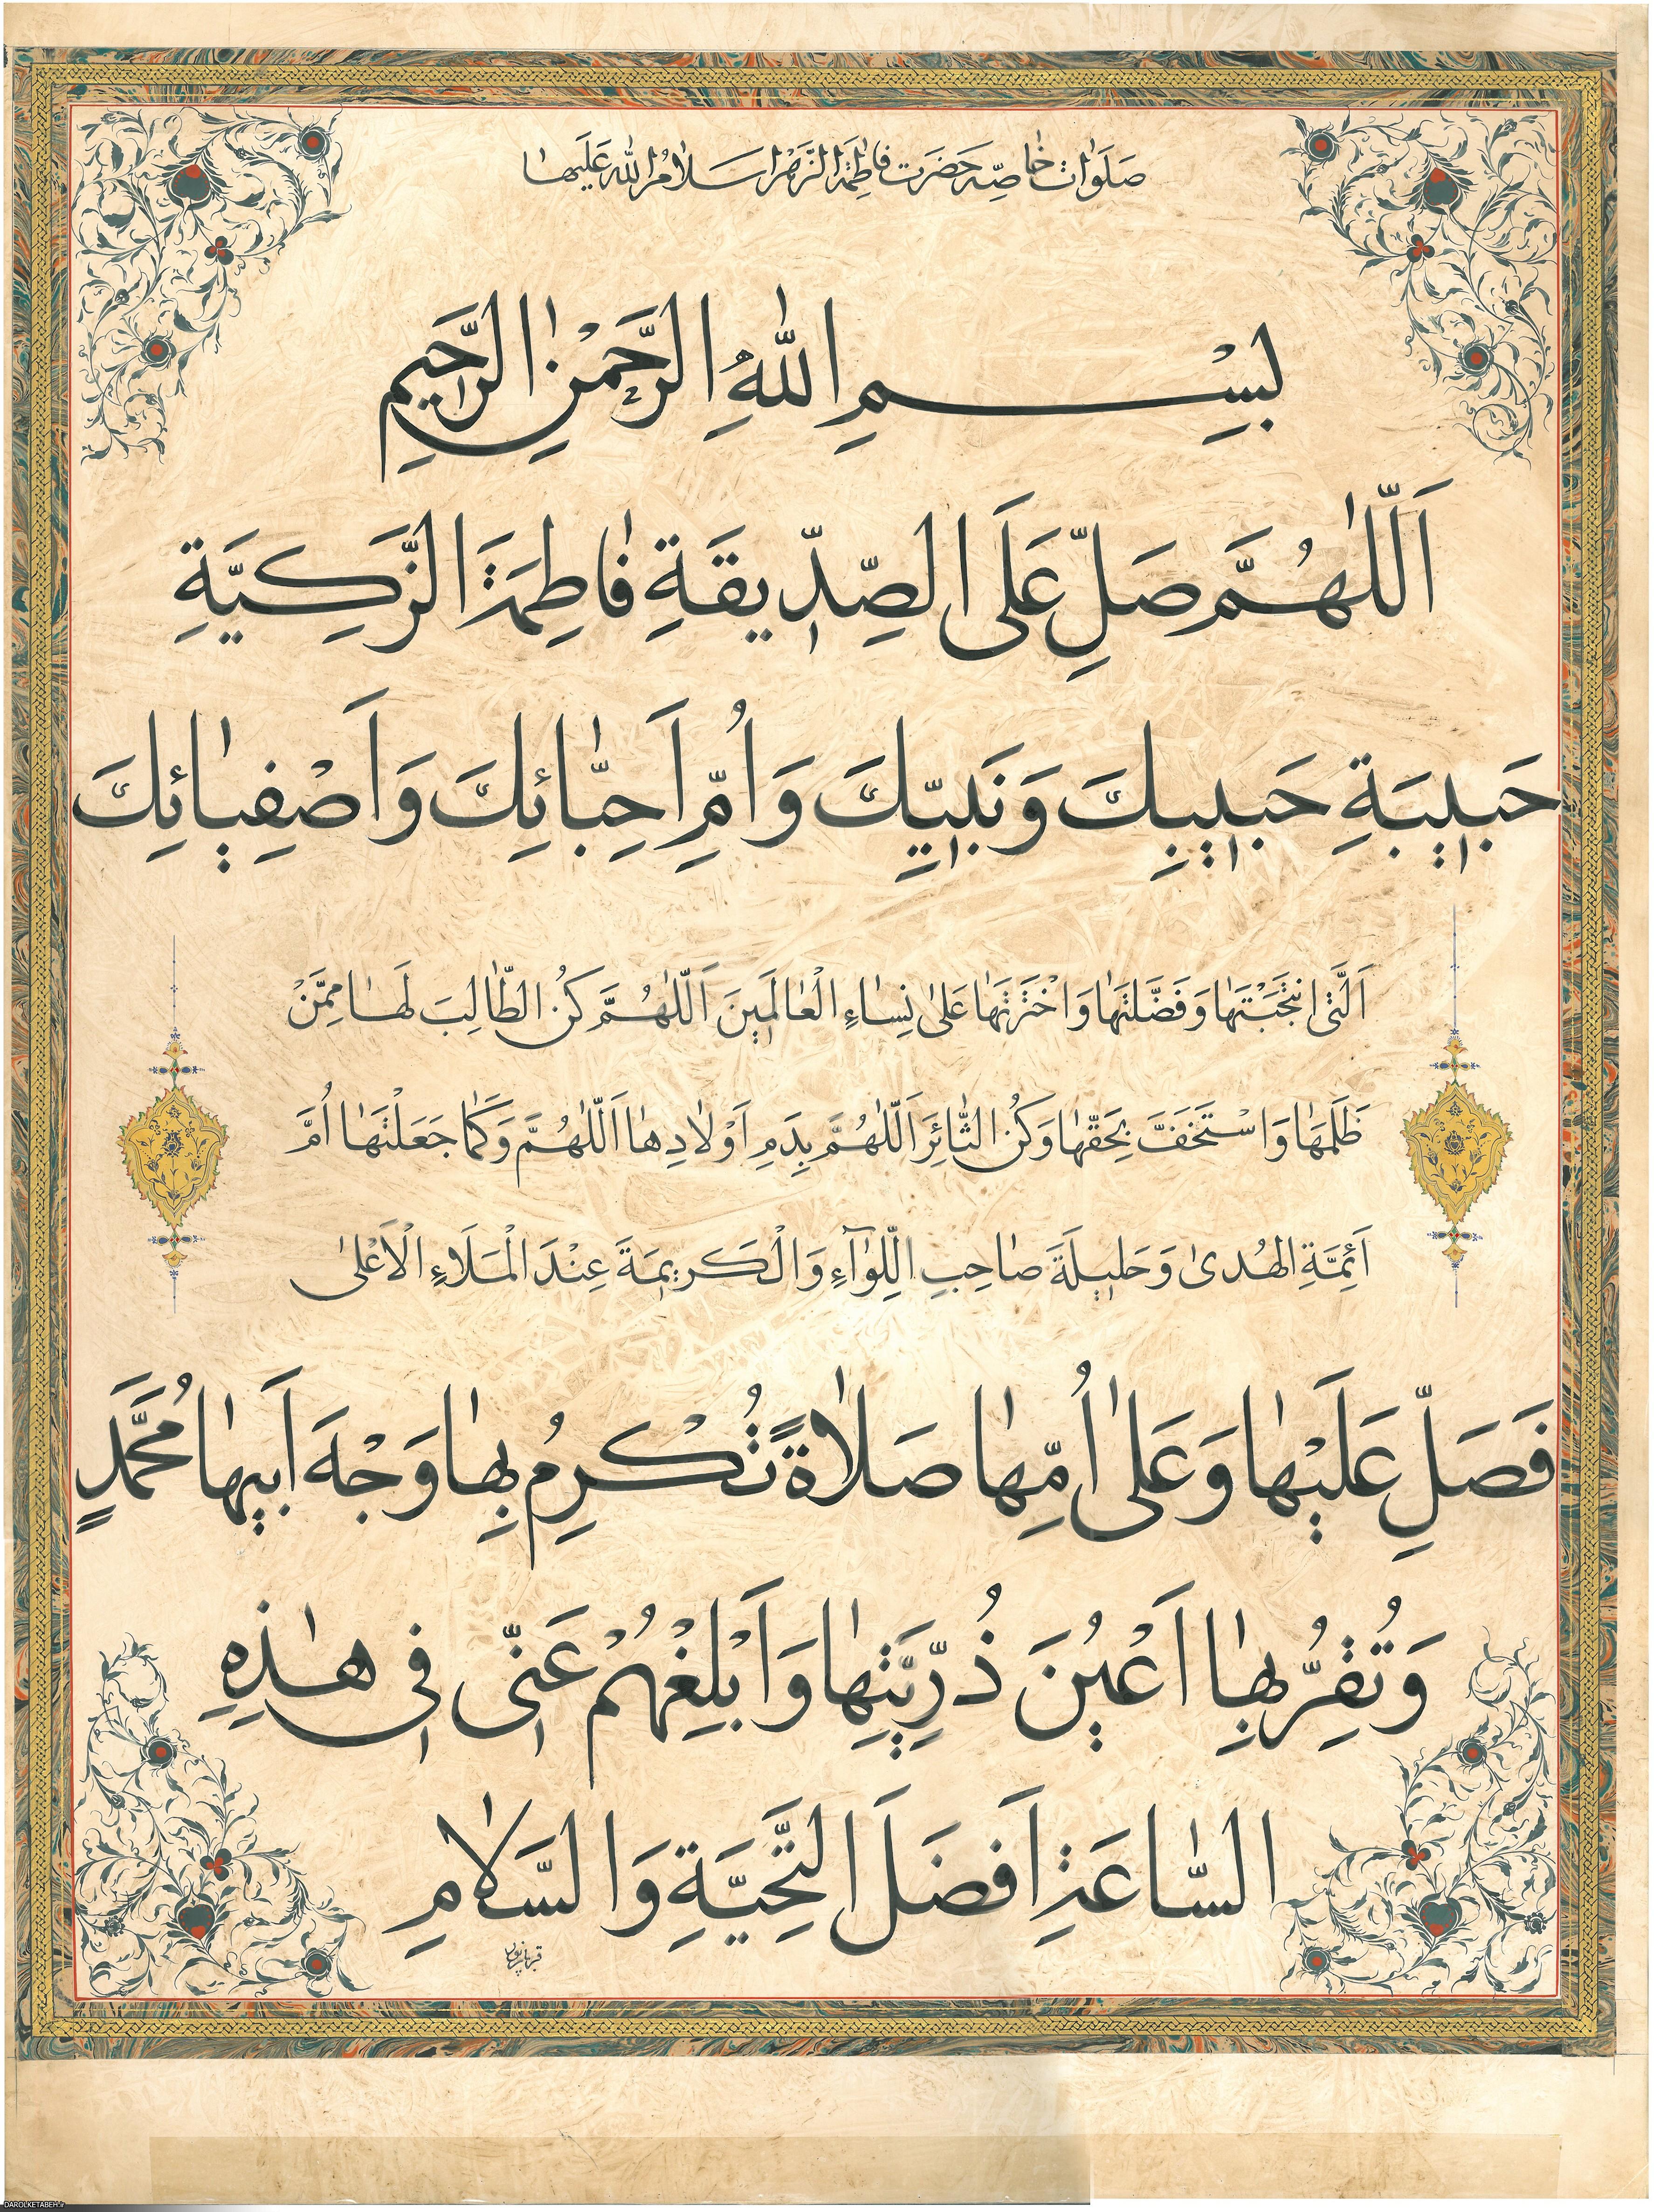 صَلَوٰات خٰاصّه حَضرَت فٰاطِمَةُ الزَّهرٰا سَلٰامُ اللّٰه عَلَیهٰا
بِسْمِ اللّٰهِ الرَّحْمٰنِ الرَّحیمِ
اَللّٰهُمَّ صَلِّ عَلَی الصِّدّیقَةِ فٰاطِمَةَ الزَّکِیَّةِ
حَبیبَةِ حَبیبِکَ وَ نَبِیِّکَ وَ اُمِّ اَحِبّٰائِکَ وَ اَصْفِیٰائِکَ
اَلَّتِی انْتَجَبْتَهٰا وَ فَضَّلْتَهٰا وَ اخْتَرْتَهٰا عَلیٰ نِسٰاءِ الْعٰالَمینَ اَللّٰهُمَّ کُنِ الطّٰالِبَ لَهٰا مِمَّنْ
ظَلَمَهٰا وَ اسْتَخَفَّ بِحَقِّهٰا وَ کُنِ الثّٰائِرَ اَللّٰهُمَّ بِدَمِ اَوْلٰادِهٰا اَللّٰهُمَّ وَ کَمٰا جَعَلْتَهٰا اُمَّ
اَئِمَّةِ الهُدیٰ وَ حَلیلَةَ صٰاحِبِ اللِّوٰآءِ وَ الْکَریمَةَ عِنْدَ الْمَلَاءِ الْاَعْلیٰ
فَصَلِّ عَلَیْهٰا وَ عَلیٰ اُمِّهٰا صَلٰاةً تُکْرِمُ بِهٰا وَجْهَ اَبیهٰا مُحَمَّدٍ
وَ تُقِرُّ بِهٰا اَعْیُنَ ذُرِّیَّتِهٰا وَ اَبْلِغْهُمْ عَنّی فی هٰذِهِ
السّٰاعَةِ اَفضَلَ التَّحِیَّةِ وَ السَّلٰامِ
قربانپور
DAROLKETABEH.ir